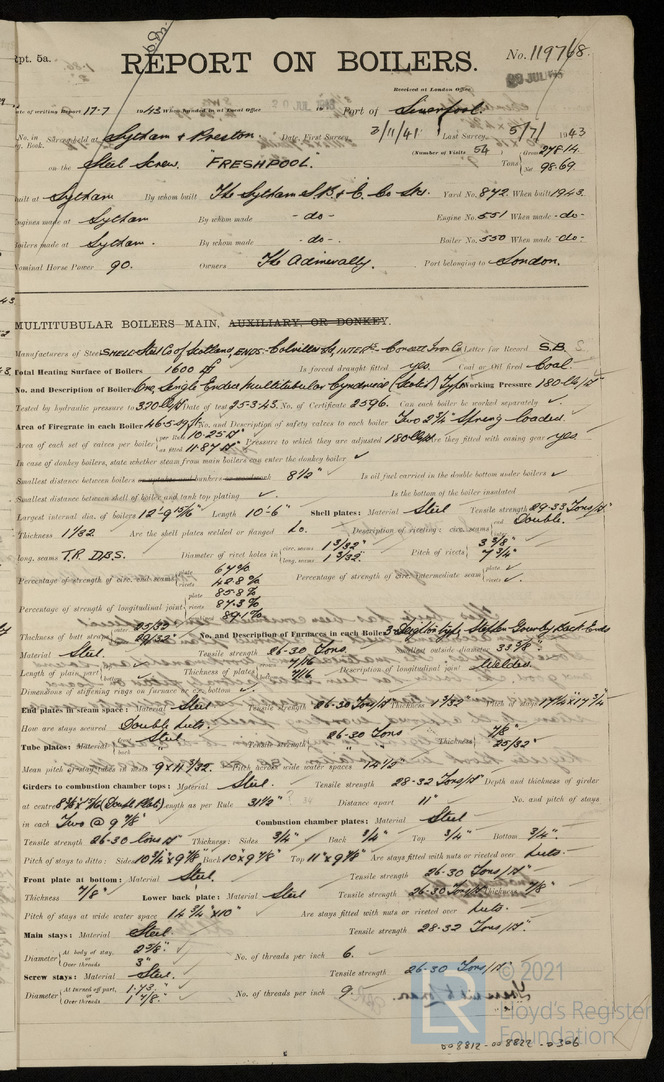 Rpt. 5a.
REPORT ON BOILERS.
No. 119768.
Received at London Office
29 JUL 1943
Date of writing Report 17-7 1943 When handed in at Local Office 20 JUL 1943 Port of Liverpool.
No. in Survey held at Lytham & Preston. Date, First Survey 3/11/41 Last Survey 5/7/1943
Reg. Book.
(Number of Visits 54
on the Steel Screw "FRESHPOOL". Tons { Gross 278.14
Net 98.69
Built at Lytham By whom built The Lytham S.B. & E. Co Ltd. Yard No. 872 When built 1943.
Engines made at Lytham By whom made - do - Engine No. 551 When made - do -
Boilers made at Lytham. By whom made - do -. Boiler No. 550 When made - do -
Nominal Horse Power 90. Owners The Admiralty. Port belonging to London.
MULTITUBULAR BOILERS MAIN, AUXILIARY, OR DONKEY.
Manufacturers of Steel SHELL Steel Co of Scotland, ENDS. Colvilles Ltd, Consett Iron Co. Letter for Record S.B. S
Total Heating Surface of Boilers 1600 Is forced draught fitted yes. Coal or Oil fired Coal.
No. and Description of Boilers One, Single Ended Multitubular Cylindrical (Scotch) Type Working Pressure 180
Tested by hydraulic pressure to 320 Date of test 25-3-43. No. of Certificate 2596. Can each boiler be worked separately ✓
Area of Firegrate in each Boiler 46.5 No. and Description of safety valves to each boiler Two 2¾" Spring loaded.
Area of each set of valves per boiler { per Rule 10.25
as fitted 11.87 Pressure to which they are adjusted 180 Are they fitted with easing gear yes.
In case of donkey boilers, state whether steam from main boilers can enter the donkey boiler ✓
Smallest distance between boilers or uptakes and bunkers or woodwork 8½" Is oil fuel carried in the double bottom under boilers ✓
Smallest distance between shell of boiler and tank top plating ✓ Is the bottom of the boiler insulated
Largest internal dia. of boilers 12'-9 15/16" Length 10'-6" Shell plates: Material Steel Tensile strength 29-33 Tons/□"
Thickness 1 1/32 Are the shell plates welded or flanged No. Description of riveting: circ. seams { end Double.
long. seams T.R. D.B.S. Diameter of rivet holes in { circ. seams 1 3/32"
long. seams 1 3/32" Pitch of rivets { 3 3/8"
7 3/4"
Percentage of strength of circ. end seams { plate 67%
rivets 42.8% Percentage of strength of circ. intermediate seam { plate ✓
rivets ✓
Percentage of strength of longitudinal joint { plate 85.8%
rivets 87.3%
89.1%
Thickness of butt straps 25/32
29/32 No. and Description of Furnaces in each Boiler 3 Back Ends
Material Steel. Tensile strength 26-30 Tons. Smallest outside diameter 33 7/8"
Length of plain part Thickness of plates { 7/16
7/16 Description of longitudinal joint Welded.
Dimensions of stiffening rings on furnace or c.c. bottom ✓
End plates in steam space: Material Steel Tensile strength 26-30 Tons/□" Thickness 1 3/32 Pitch of stays 17¼" x 17¾"
How are stays secured Double Nuts.
Tube plates: Material { Steel
back " Tensile strength { 26-30 Tons
" Thickness { 7/8"
25/32"
Mean pitch of stay tubes in nests 9 x 11 3/32. Pitch across wide water spaces 14½"
Girders to combustion chamber tops: Material Steel. Tensile strength 28-32 Tons/□" Depth and thickness of girder
at centre (Double Plate) Length as per Rule 31½" ? 34 Distance apart 11" No. and pitch of stays
in each Two @ 9 7/8" Combustion chamber plates: Material Steel
Tensile strength 26-30 Tons □" Thickness: Sides ¾" Back ¾" Top ¾" Bottom ¾".
Pitch of stays to ditto: Sides 10¾" x 9 7/8" Back 10 x 9 7/8" Top 11" x 9 7/8" Are stays fitted with nuts or riveted over Nuts.
Front plate at bottom: Material Steel. Tensile strength 26-30 Tons/□"
Thickness 7/8" Lower back plate: Material Steel Tensile strength 26-30 Tons/□" Thickness 7/8"
Pitch of stays at wide water space 14¾" x 10" Are stays fitted with nuts or riveted over Nuts.
Main stays: Material Steel. Tensile strength 28-32 Tons/□".
Diameter { At body of stay, 2 7/8".
or
Over threads 3" No. of threads per inch 6.
Screw stays: Material Steel. Tensile strength 26-30 Tons/□"
Diameter { At turned off part, 1.73."
or
Over threads 1 7/8" No. of threads per inch 9.
© 2021
LR
Lloyd's Register
Foundation